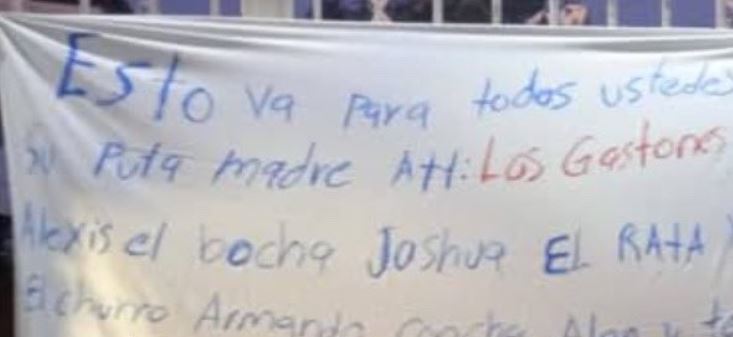 Esto va para todos ustedes
su Puta madre Att: Los Gastones
Alexis el bocha Joshua EL RAtA y
El churro Armando Alan y